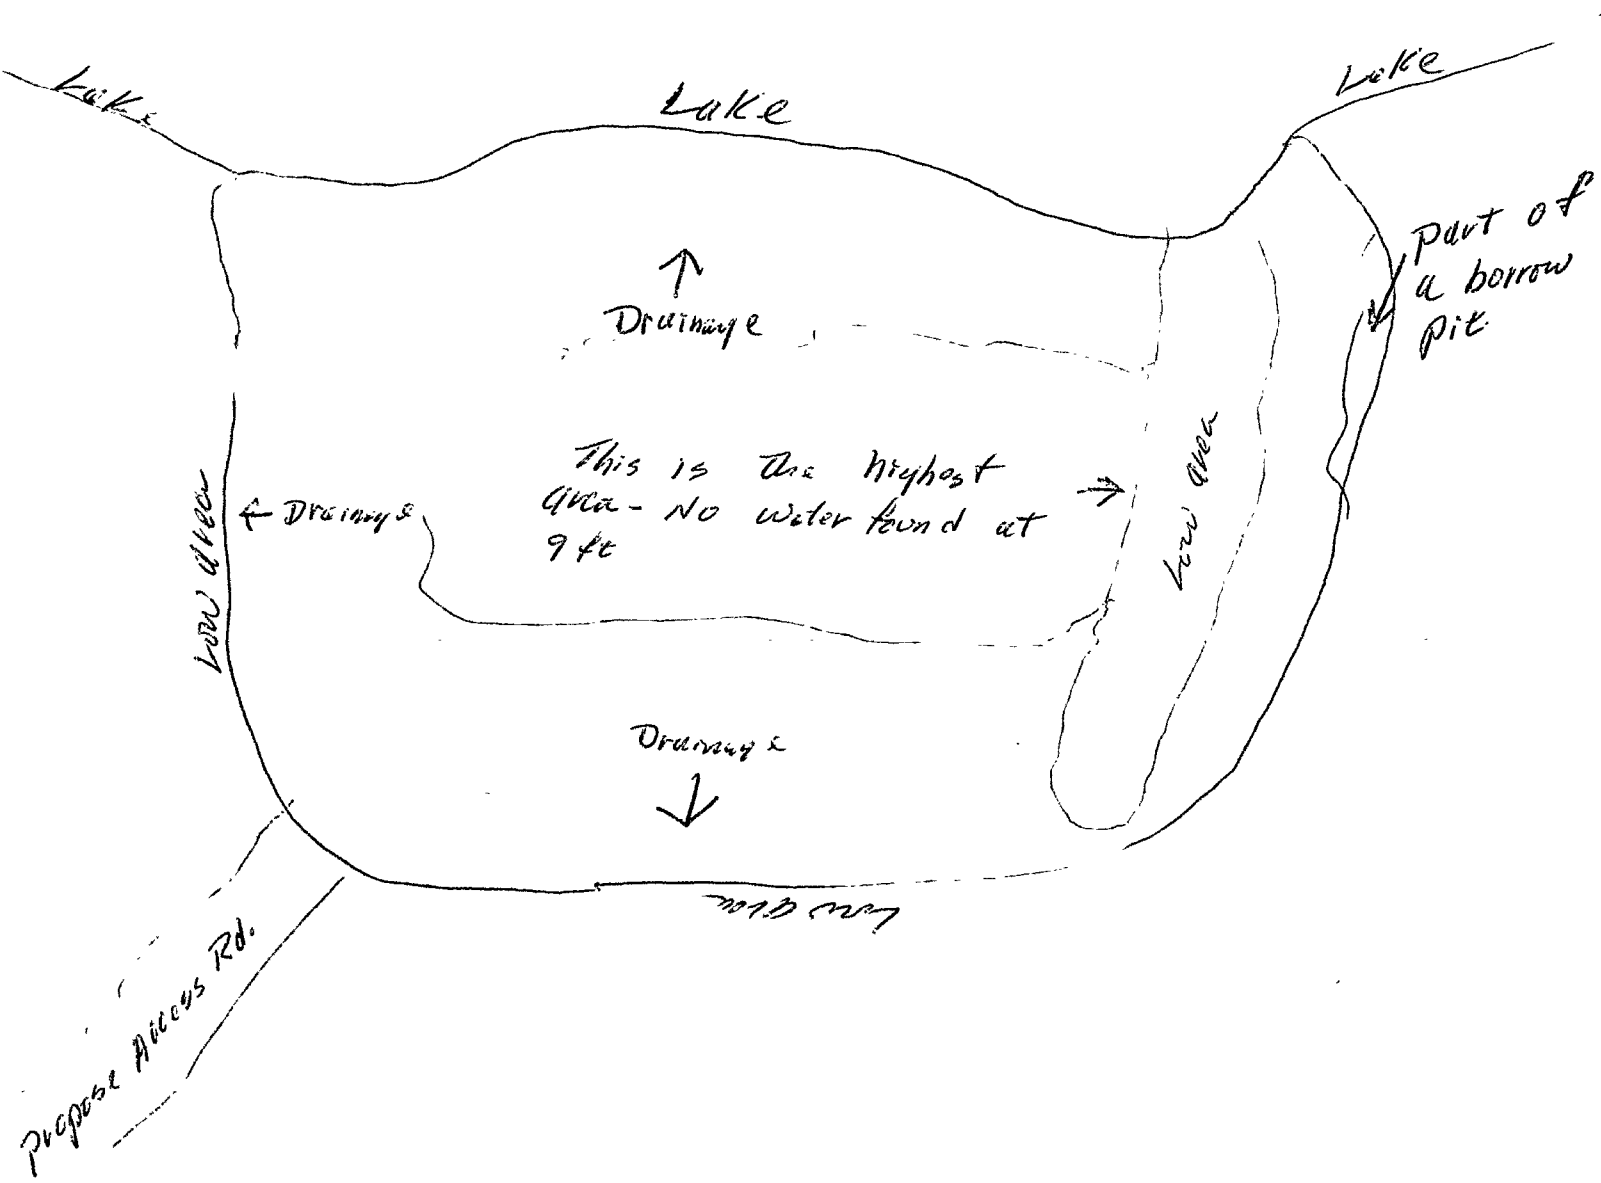 Lake
Lake
Lake
part of
a borrow
pit.
Drainage
This is the highest
area - No water found at
9 ft
Drainage
Low area
Low area
Drainage
Low area
Propose Access Rd.